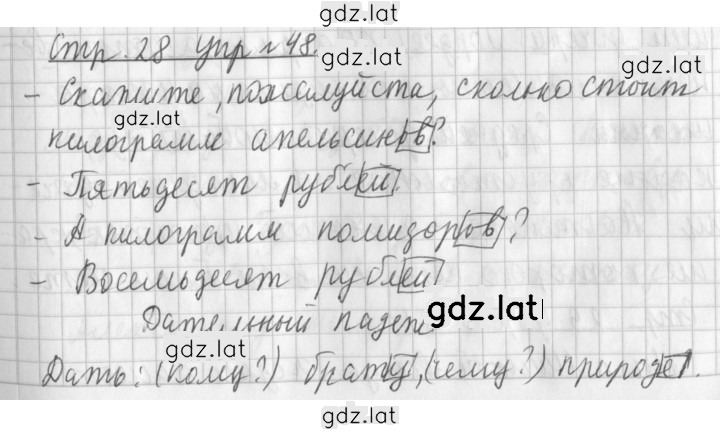 gdz.lat
Стр. 28 Упр № 48.
gdz.lat
- Скажите, пожалуйста, сколько стоит
gdz.lat
килограмм апельсинов?
- Пятьдесят рублей.
gdz.lat
- А килограмм помидоров?
- Восемьдесят рублей
gdz.lat
Дательный падеж
gdz.lat
Дать: (кому?) брату, (чему?) природе.
gdz.lat